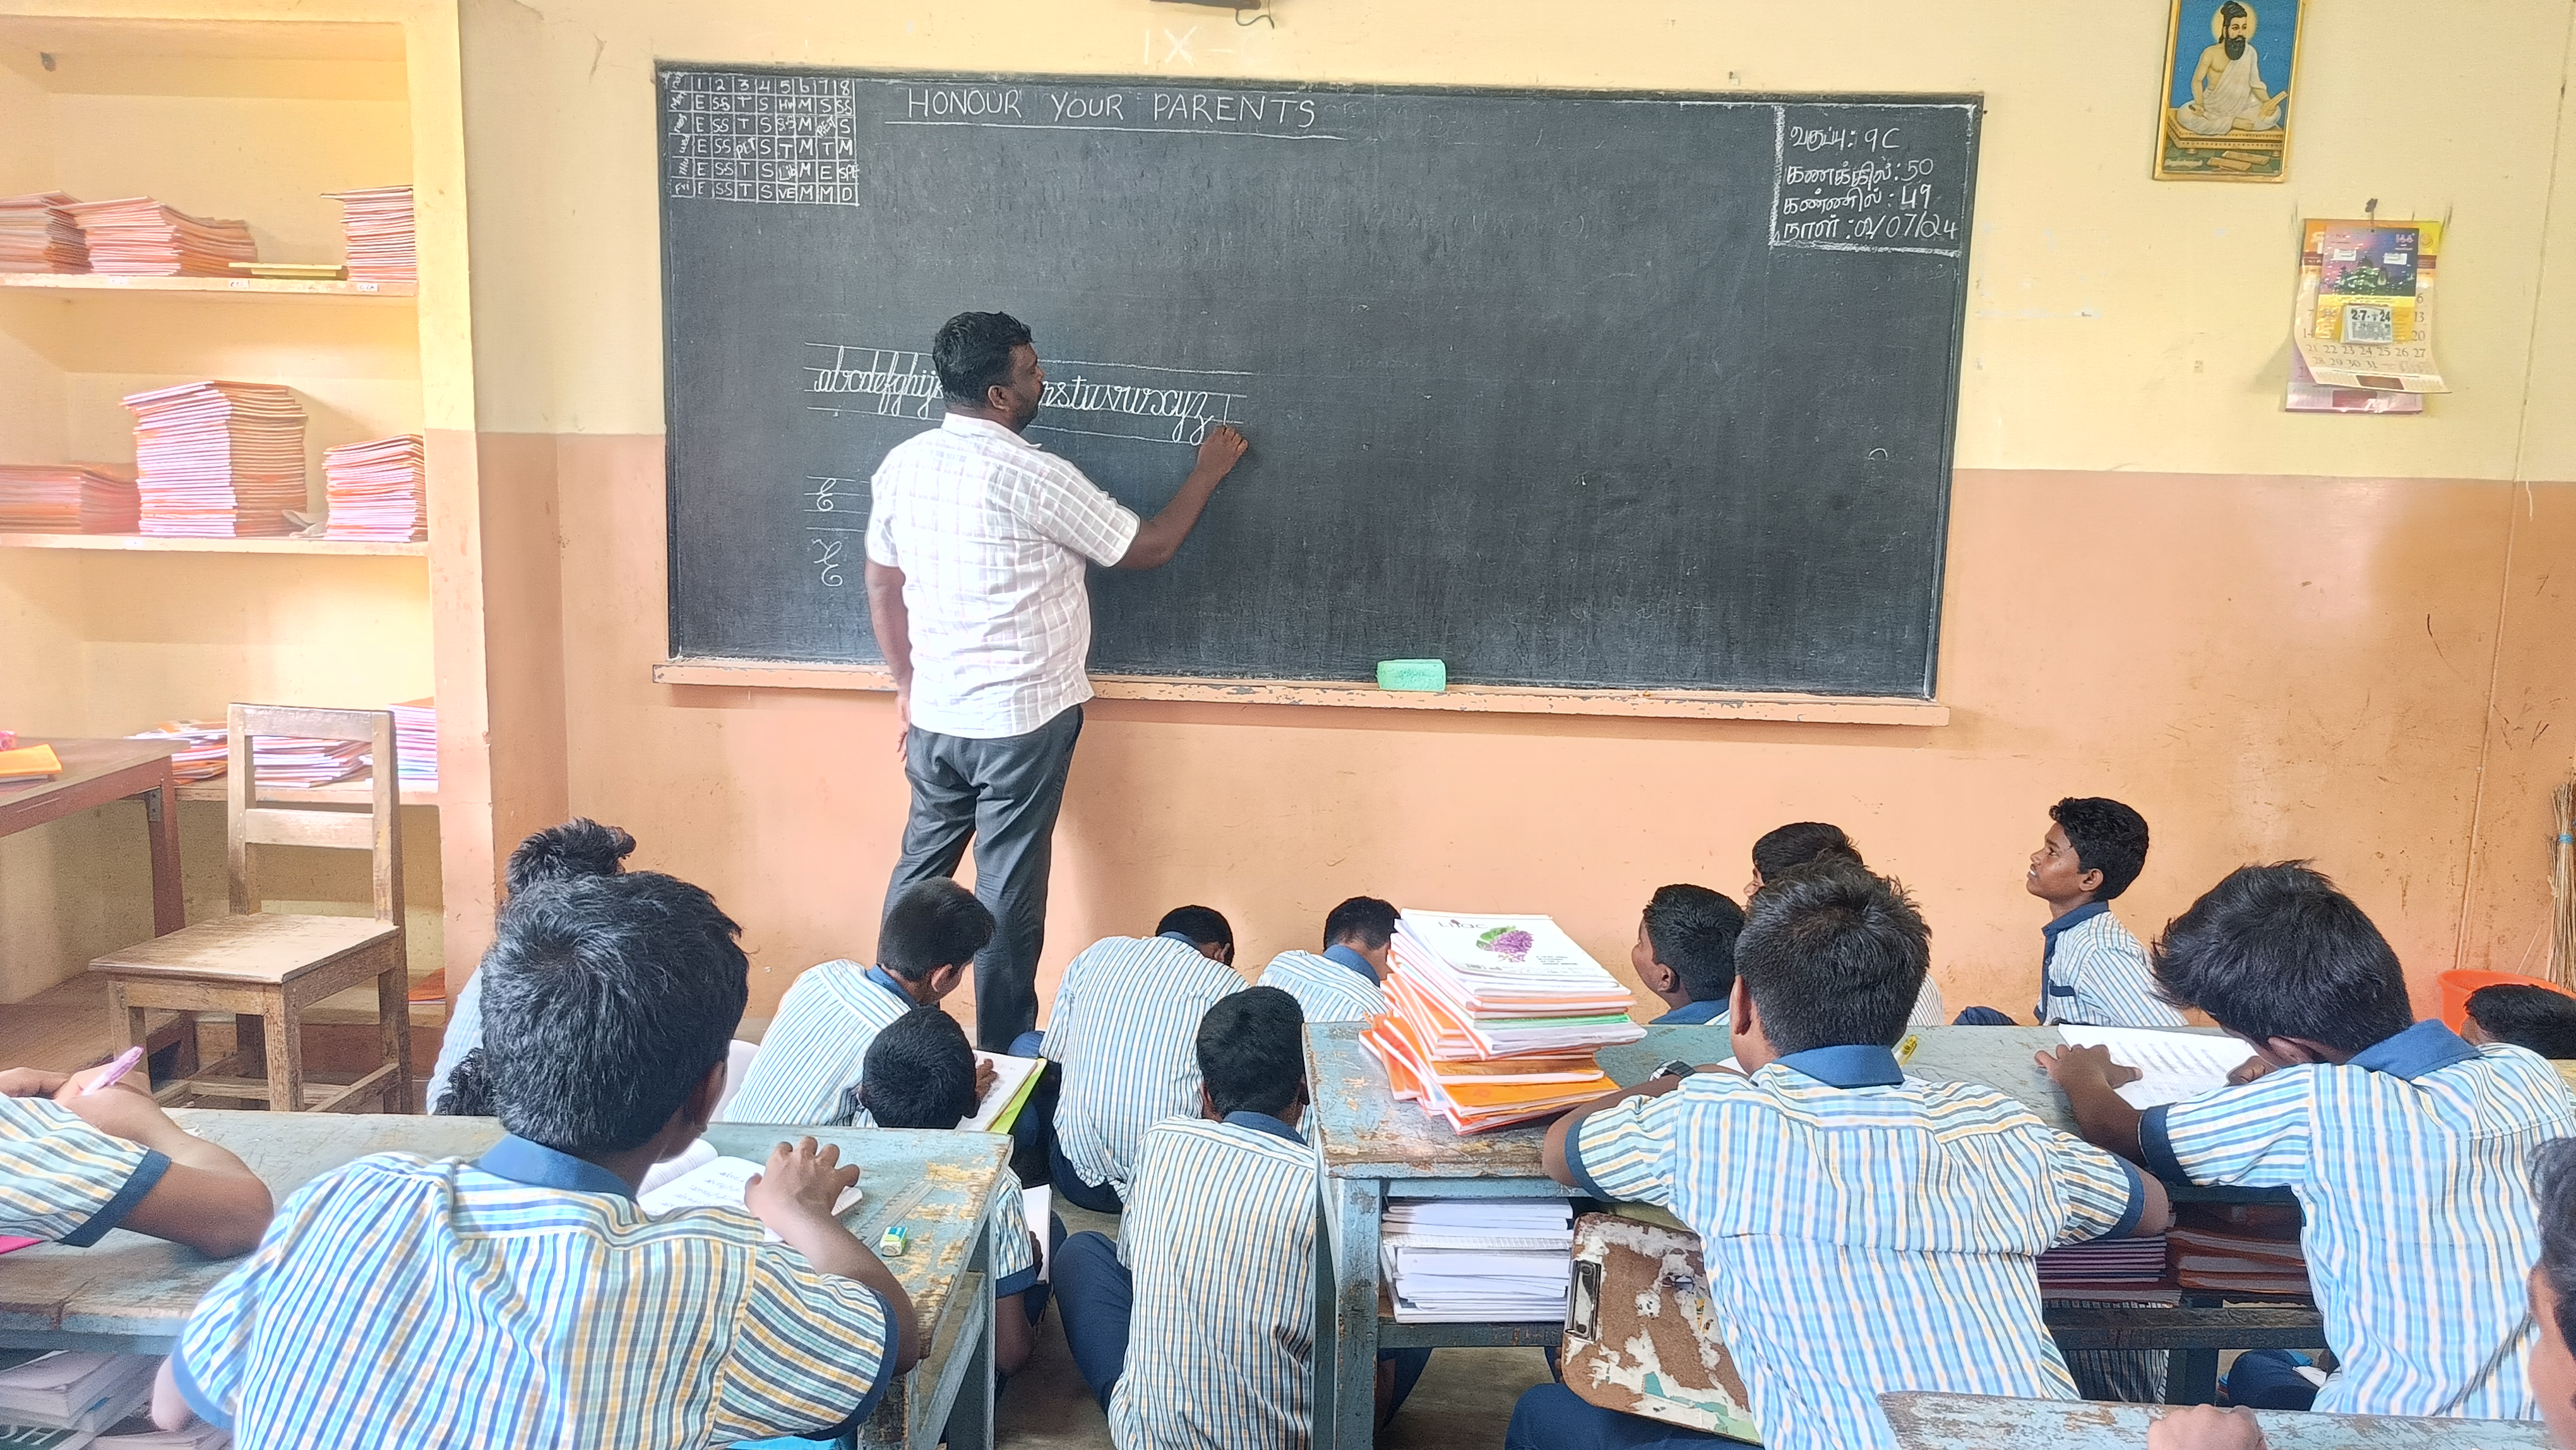 IX-C
1 2 3 4 5 6 7 8
E SS T S M S SS
E SS T S SS M PET S
E SS PET S T M T M
Thu E SS T S Lib M E
Fri E SS T S VE M M D
HONOUR YOUR PARENTS
வகுப்பு: 9C
கணக்கில்: 50
கண்ணில்: 49
நாள்: 02/07/24
abcdefghij rstuvwxyz
2-7-24
6
13
20
21 22 23 24 25 26 27
28 29 30 31
Lilac